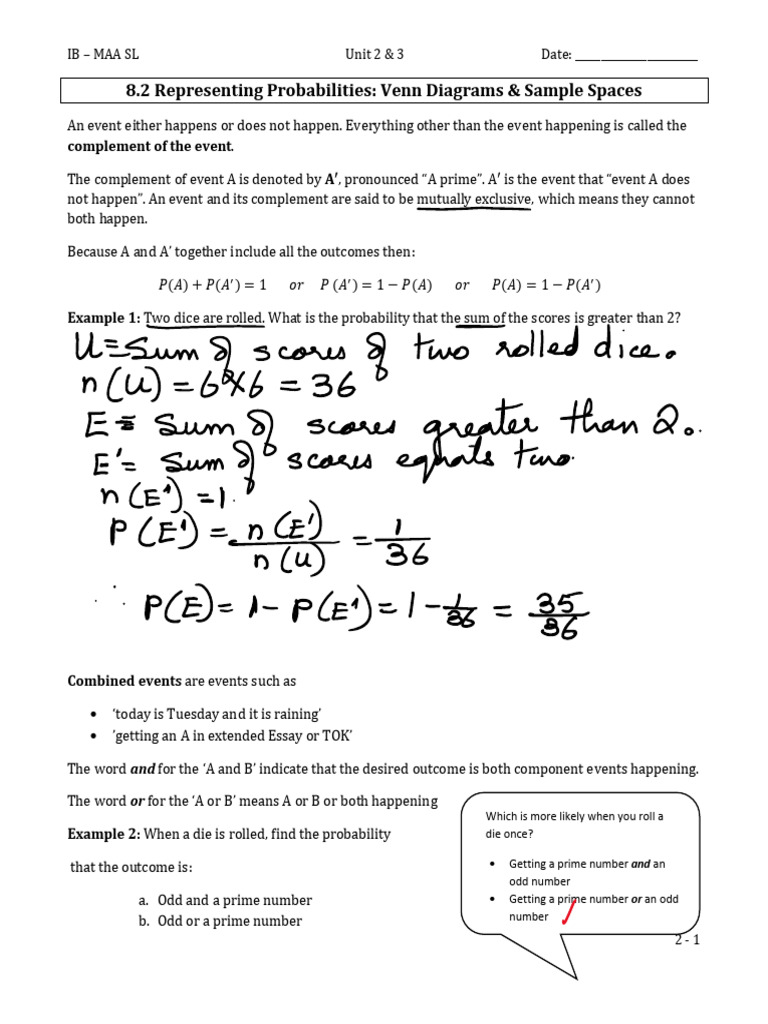 IB – MAA SL Unit 2 & 3 Date: ____________________
8.2 Representing Probabilities: Venn Diagrams & Sample Spaces
An event either happens or does not happen. Everything other than the event happening is called the
complement of the event.
The complement of event A is denoted by A′, pronounced “A prime”. A′ is the event that “event A does
not happen”. An event and its complement are said to be mutually exclusive, which means they cannot
both happen.
Because A and A’ together include all the outcomes then:
P(A) + P(A′) = 1 or P (A′) = 1 − P(A) or P(A) = 1 − P(A′)
Example 1: Two dice are rolled. What is the probability that the sum of the scores is greater than 2?
U = Sum of scores of two rolled dice.
n(U) = 6×6 = 36
E = Sum of scores greater than 2.
E' = Sum of scores equals two.
n(E') = 1.
P(E') = n(E')/n(U) = 1/36
∴ P(E) = 1 − P(E') = 1 − 1/36 = 35/36
Combined events are events such as
• ‘today is Tuesday and it is raining’
• ‘getting an A in extended Essay or TOK’
The word and for the ‘A and B’ indicate that the desired outcome is both component events happening.
The word or for the ‘A or B’ means A or B or both happening
Example 2: When a die is rolled, find the probability
that the outcome is:
a. Odd and a prime number
b. Odd or a prime number
Which is more likely when you roll a
die once?
• Getting a prime number and an
odd number
• Getting a prime number or an odd
number
2 - 1